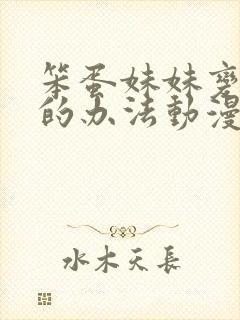 笨蛋妹妹变
的办法動漫
水木天長